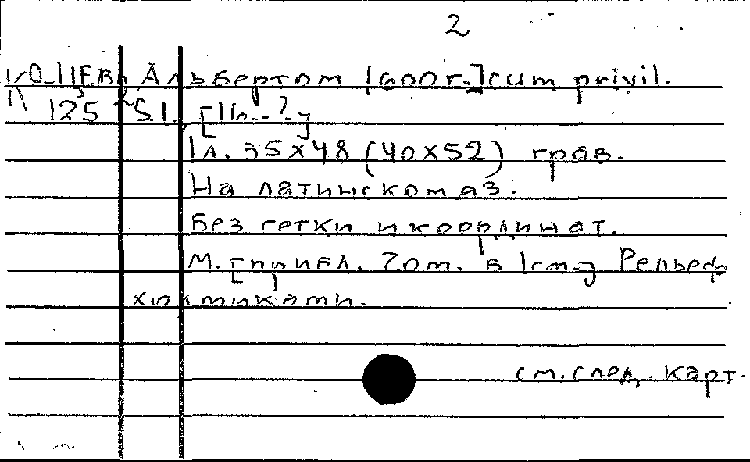 2
КО-II Ев Альбертом [600г.] cum privil.
125 S.l.
1л. 35x48 (40x52) грав.
На латинском яз.
Без сетки и координат.
М. [прибл. 20т. в 1см.] Рельеф
холмиками.
см. след. карт.